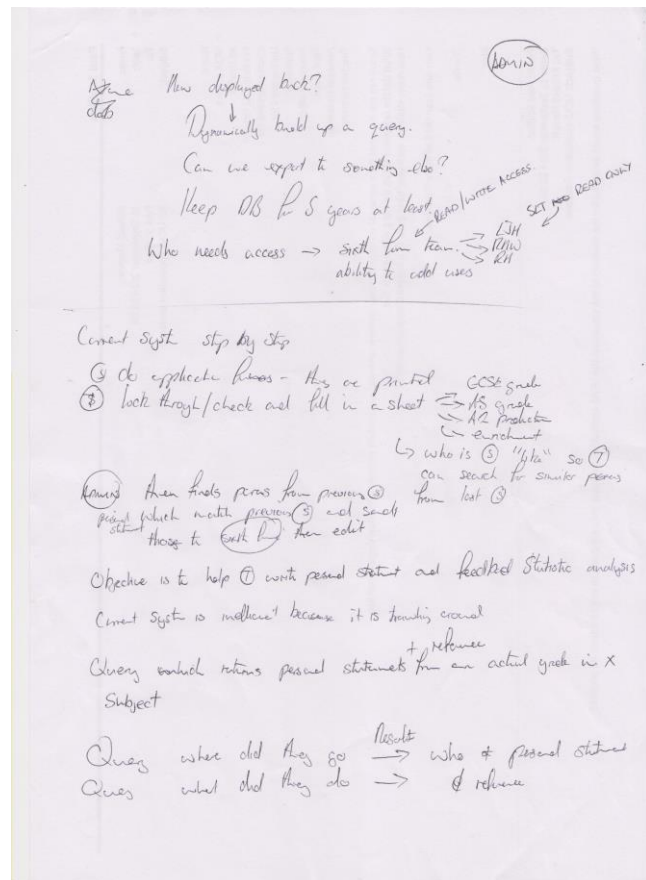 ADMIN
How displayed back?
Dynamically build up a query.
Can we export to something else?
Keep DB for 5 years at least.
READ/WRITE ACCESS
SET READ ONLY
Who needs access → sixth form team. → LJH
→ RMW
→ RH
ability to add users
Current System step by step
Ⓢ do application - they are printed
look through/check and fill in a sheet → GCSE grade
→ AS grade
→ A2 prediction
→ enrichment
↳ who is Ⓢ "like" so Ⓣ
can search for similar persons
from last Ⓢ
Admin then finds persons from previous Ⓢ
personal statement which match previous Ⓢ and sends
those to sixth form then edit
Objective is to help Ⓣ with personal statement and feedback Statistic analysis
Current System is because it is around
+ reference
Query which returns personal statements from an actual grade in X
Subject
Query where did they go Result → who & personal statement
Query what did they do → & reference